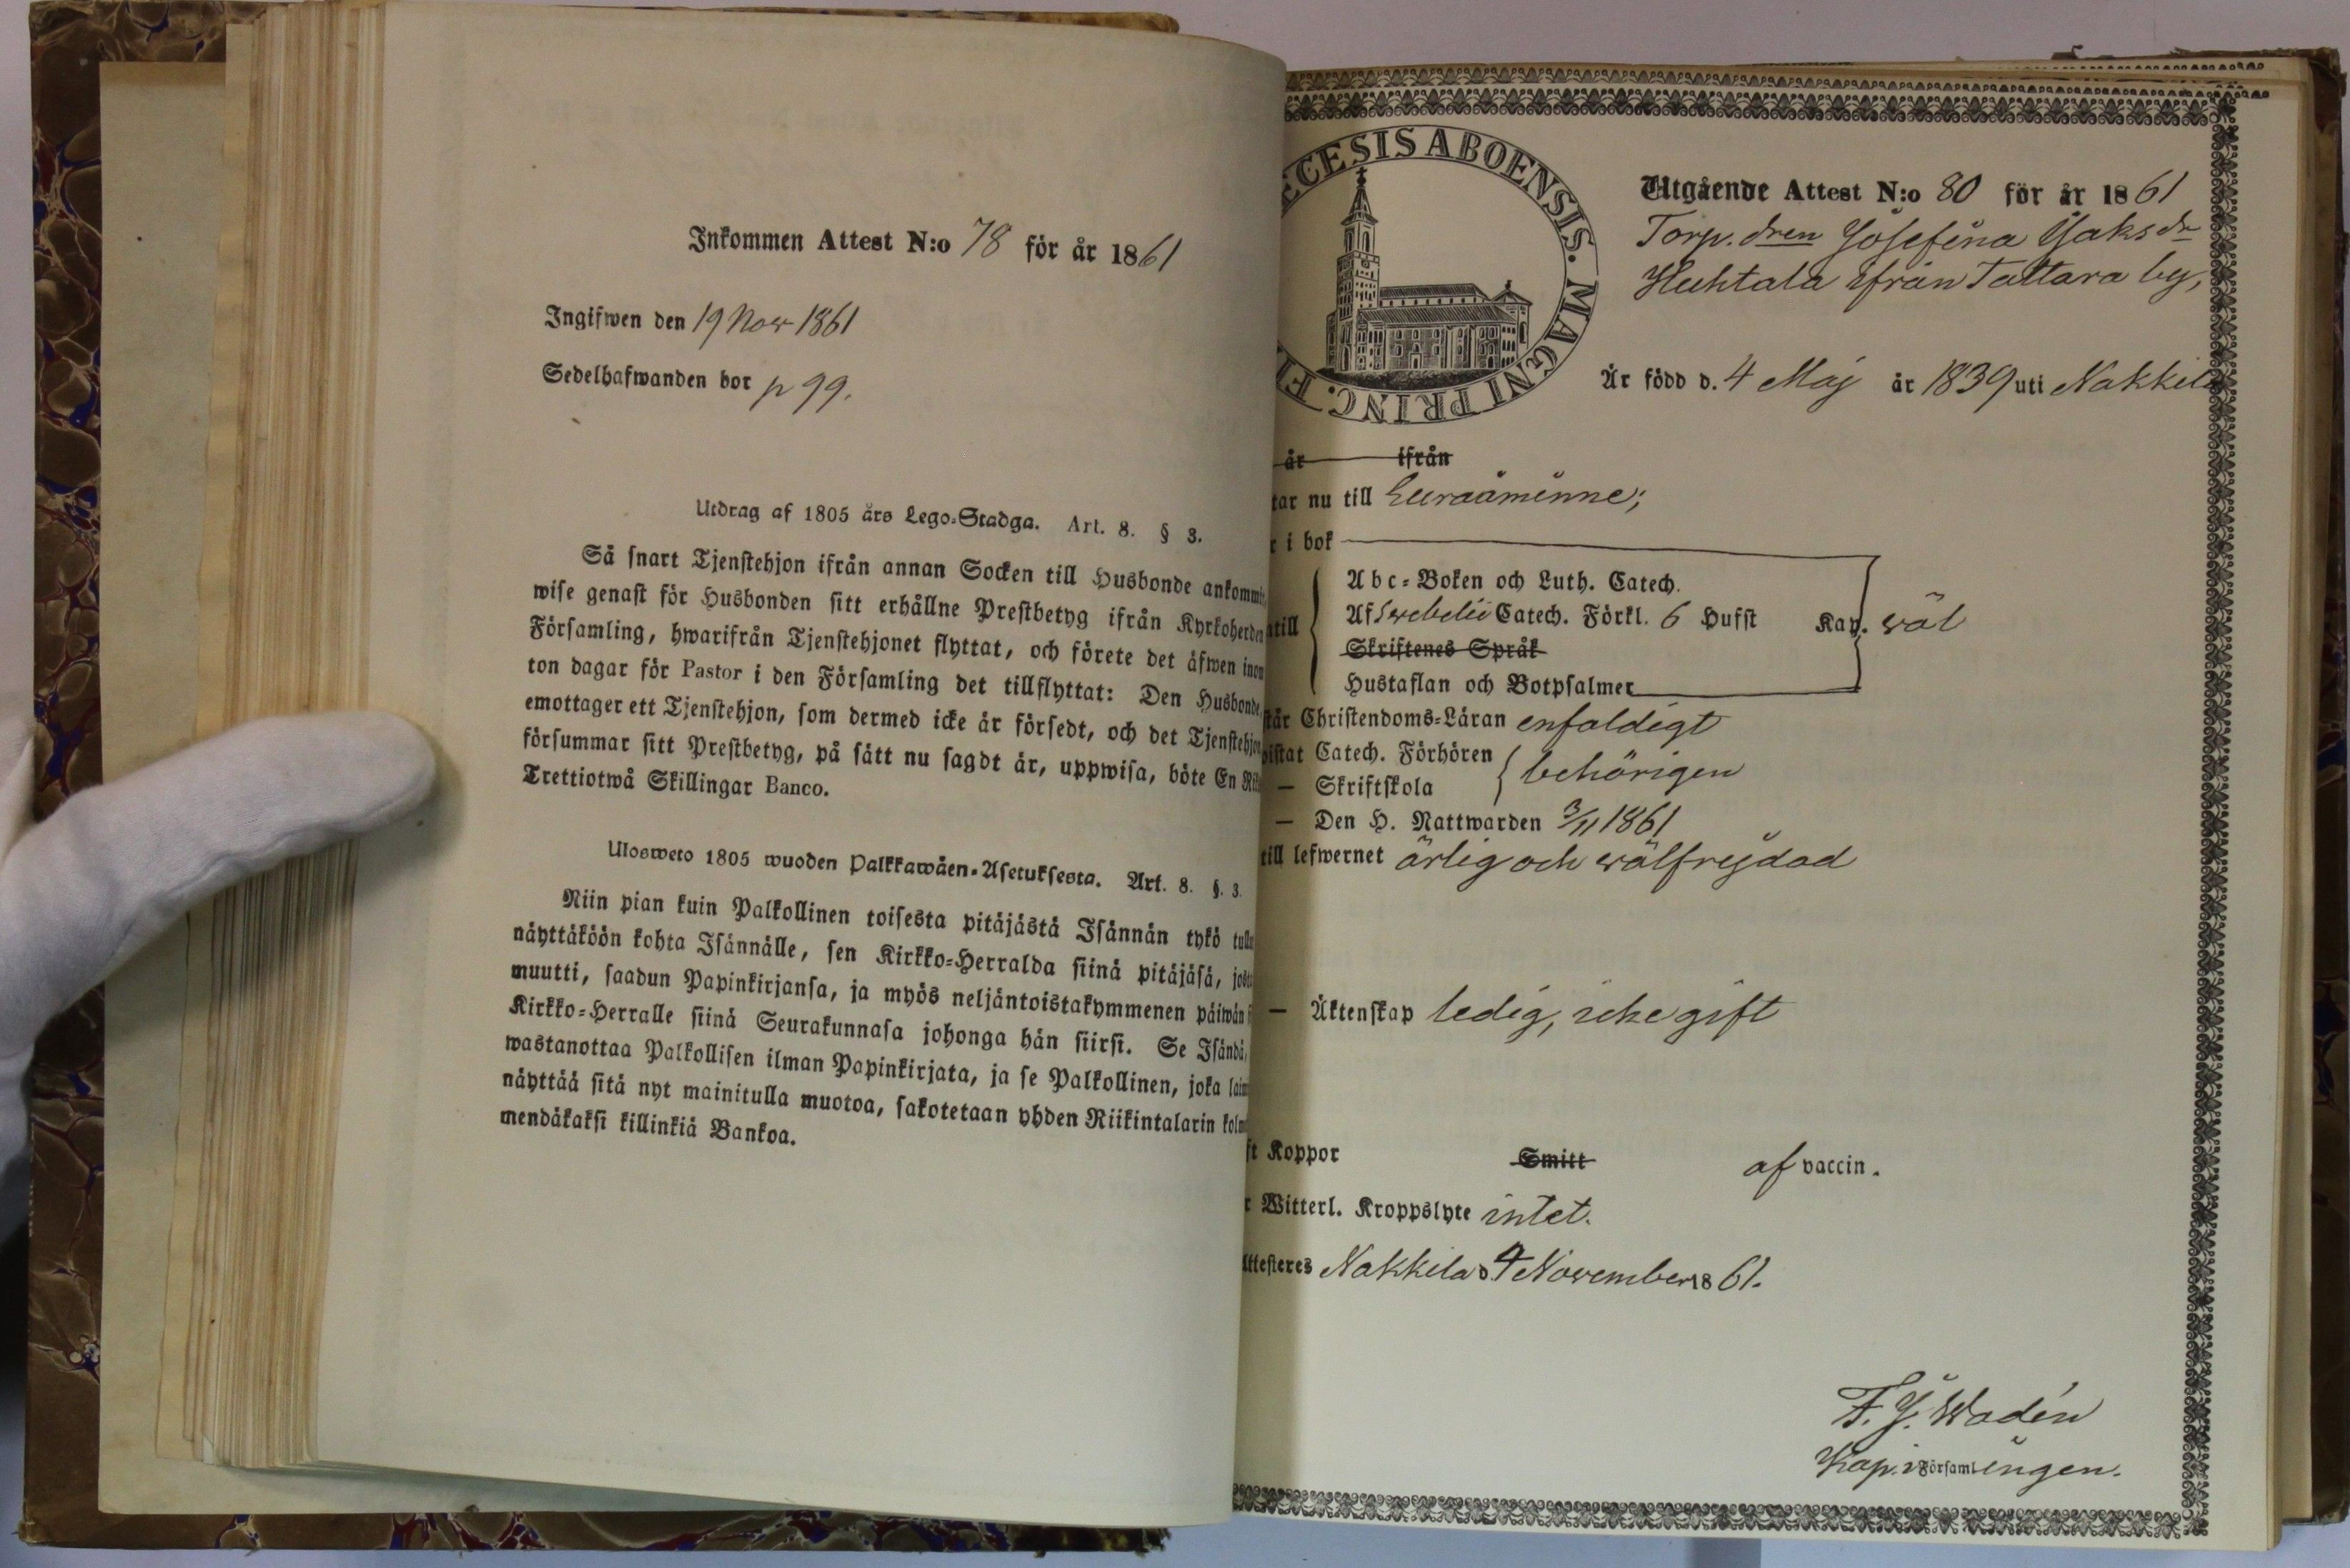 Inkommen Attest N:o 78 för år 1861
Ingifwen den 19 Nov 1861
Sedelhafwanden bor p 99.
Utdrag af 1805 års Lego-Stadga. Art. 8. § 3.
Så snart Tjenstehjon ifrån annan Socken till Husbonde ankommit,
wise genast för Husbonden sitt erhållne Prestbetyg ifrån Kyrkoherden
Församling, hwarifrån Tjenstehjonet flyttat, och förete det äfwen inom
ton dagar för Pastor i den Församling det tillflyttat: Den Husbonde,
emottager ett Tjenstehjon, som dermed icke är försedt, och det Tjenstehjon
försummar sitt Prestbetyg, på sätt nu sagdt är, uppwisa, böte En Rik
Trettiotwå Skillingar Banco.
Ulosweto 1805 wuoden Palkkawäen-Asetuksesta. Art. 8. §. 3.
Niin pian kuin Palkollinen toisesta pitäjästä Isännän tykö tullu
näyttäköön kohta Isännälle, sen Kirkko-Herralda siinä pitäjäsä, josta
muutti, saadun Papinkirjansa, ja myös neljäntoistakymmenen päiwän
Kirkko-Herralle siinä Seurakunnasa johonga hän siirsi. Se Isändä,
wastanottaa Palkollisen ilman Papinkirjata, ja se Palkollinen, joka laim
näyttää sitä nyt mainitulla muotoa, sakotetaan yhden Riikintalarin kolm
mendäkaksi killinkiä Bankoa.
ECESIS ABOENSIS. MAGNI PRINC. FI
Utgående Attest N:o 80 för år 1861
Torp. dren Josefina Isaksdr
Huhtala ifrån Tattara by,
Är född d. 4 Maj år 1839 uti Nakkila
år ifrån
tar nu till Euraåminne;
r i bok
Abc-Boken och Luth. Catech.
till Af Swebelii Catech. Förkl. 6 Hufst Kap. wäl
Skriftenes Språk
Hustaflan och Botpsalmer
står Christendoms-Läran enfaldigt
vistat Catech. Förhören
behörigen
— Skriftskola
— Den H. Nattwarden 3/11 1861
till lefwernet ärlig och wälfrejdad
— Äktenskap ledig, icke gift
ft Koppor Smitt af vaccin.
r Witterl. Kroppslyte intet.
Attesteres Nakkila d 4 November 1861.
F. J. Wadén
Kap. i Församlingen.